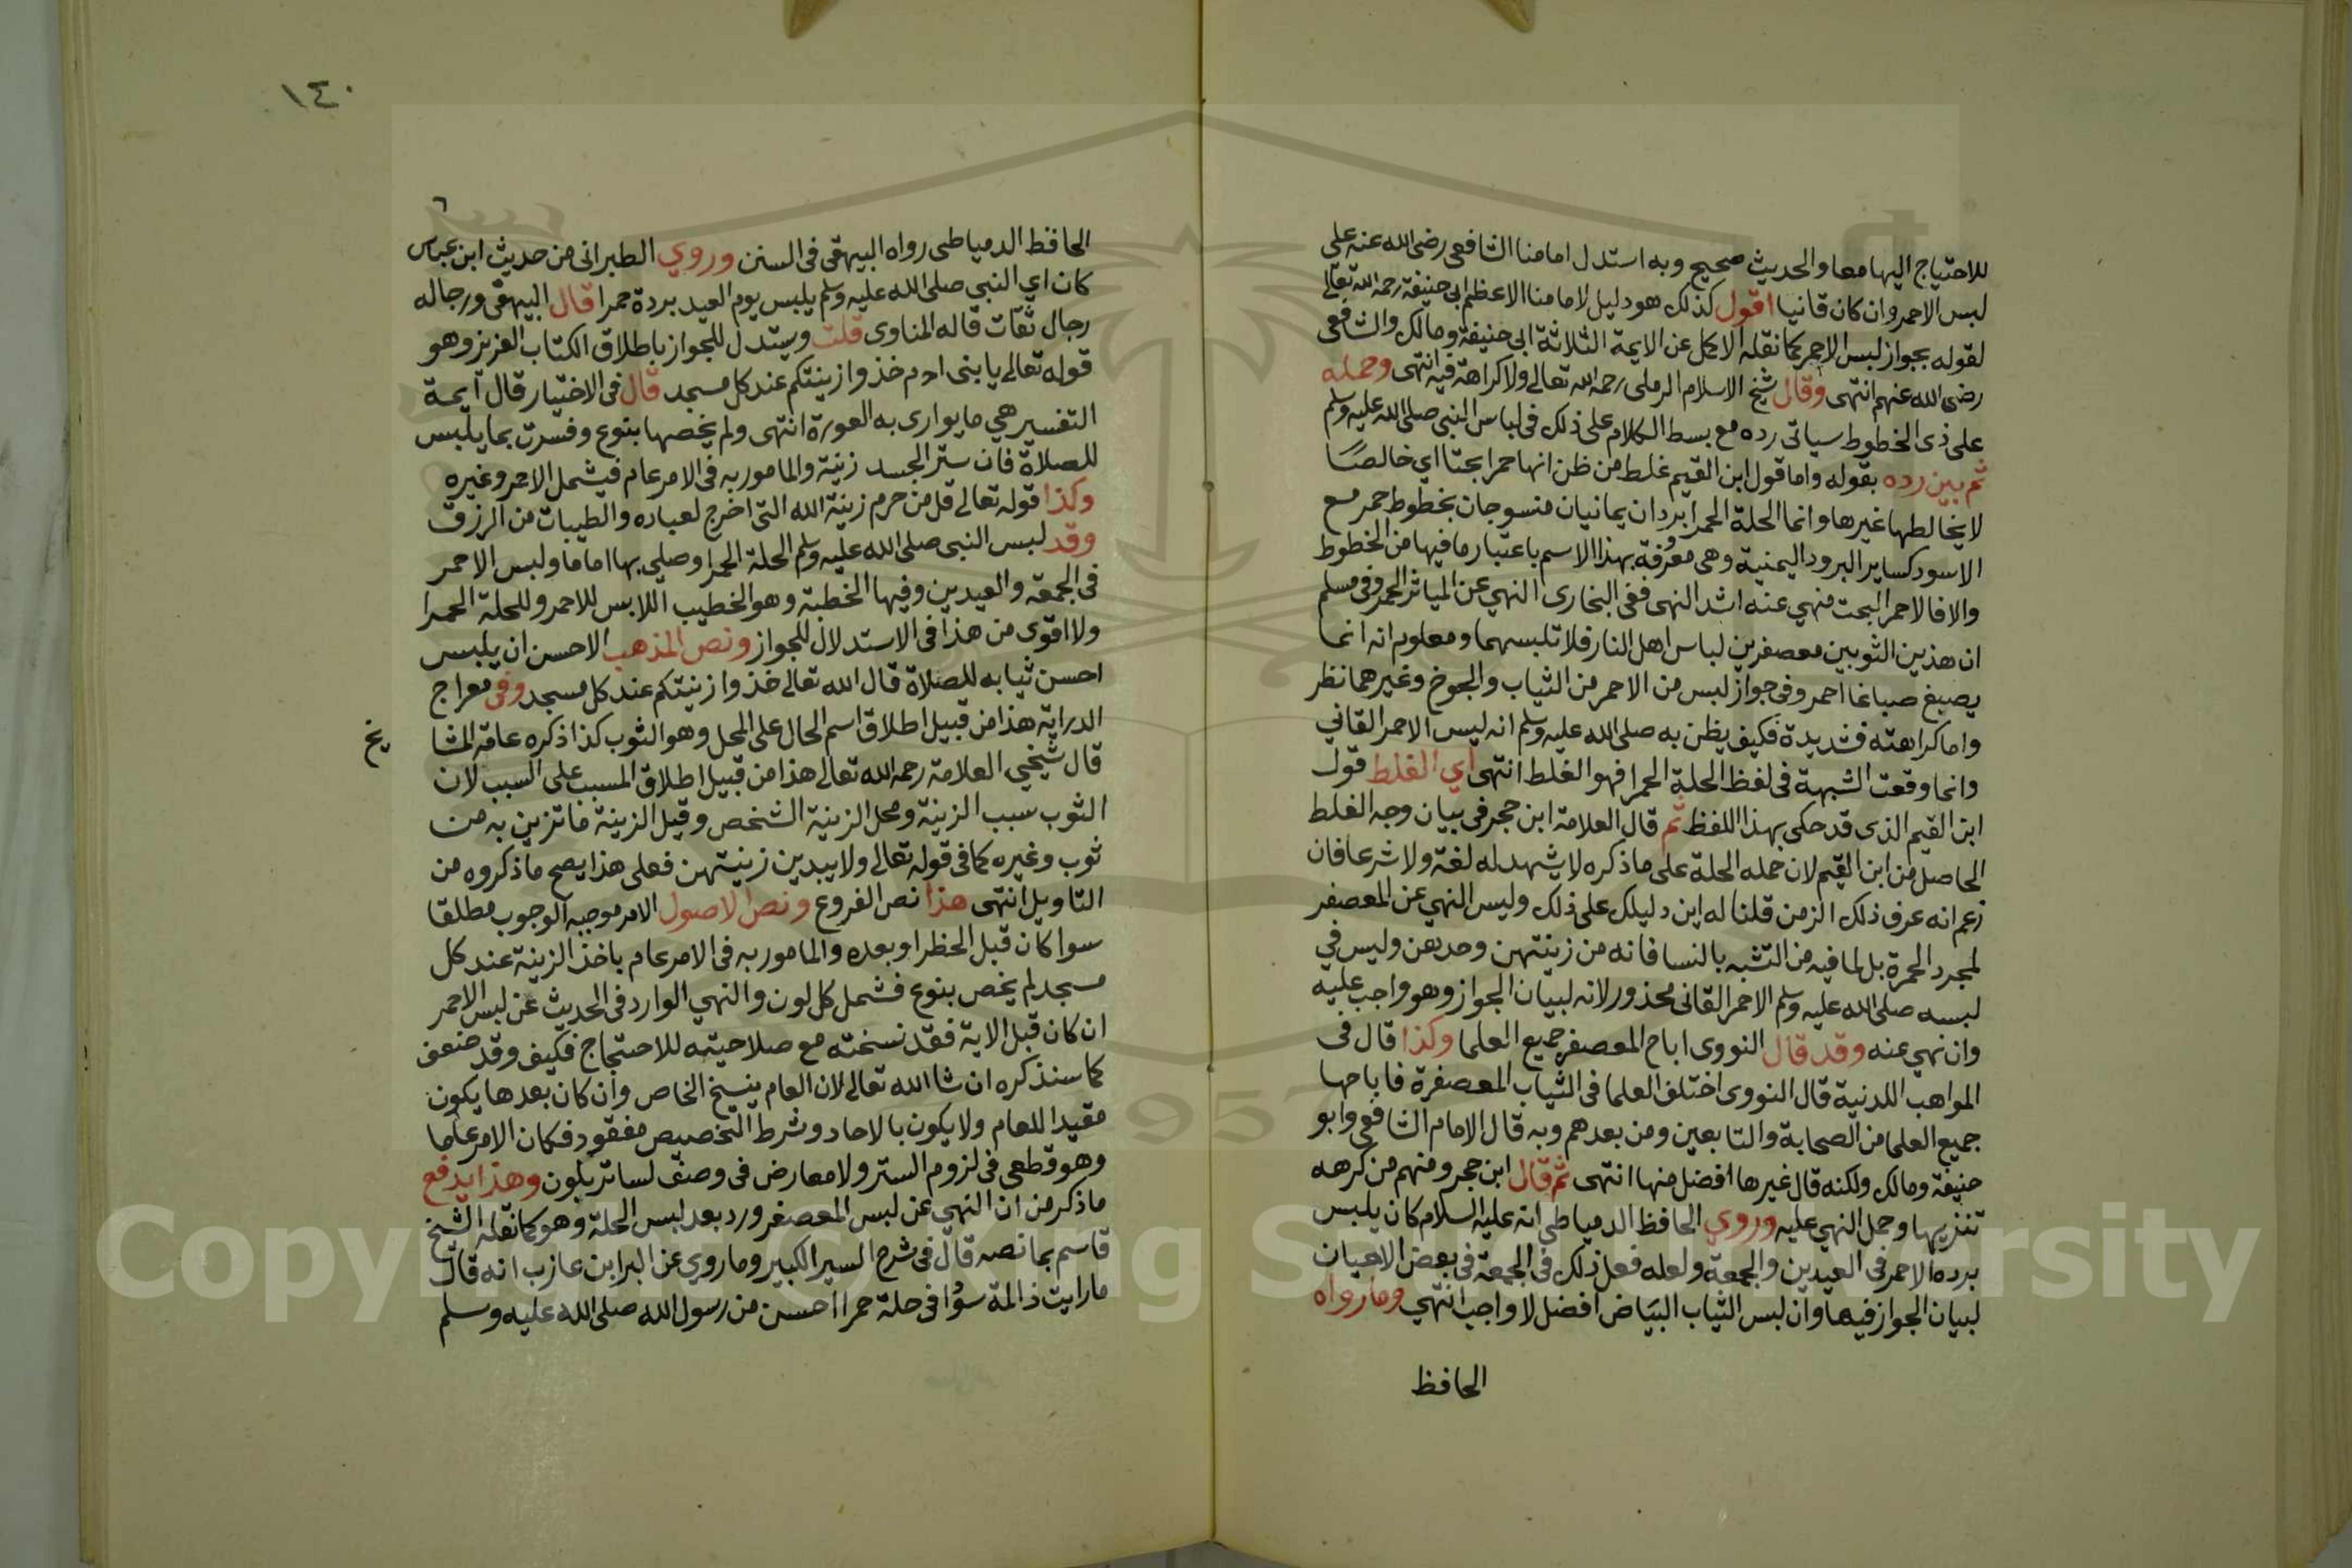 للاحتياج اليها معا والحديث صحيح وبه استدل امامنا الشافعى رضى الله عنه على
لبس الاحمر وان كان قانيا اقول كذلك هو دليل لامامنا الاعظم ابى حنيفة رحمه الله تعالى
لقوله بجواز لبس الاحمر كما نقله الاكمل عن الايمة الثلاثة ابى حنيفة ومالك والشافعى
رضى الله عنهم انتهى وقال شيخ الاسلام الرملى رحمه الله تعالى ولا كراهة فيه انتهى وحمله
على ذى الخطوط سياتى رده مع بسط الكلام على ذلك فى لباس النبى صلى الله عليه وسلم
ثم بين رده بقوله واما قول ابن القيم غلط من ظن انها حمرا بحتا اي خالصًا
لا يخالطها غيرها وانما الحلة الحمرا بردان يمانيان منسوجان بخطوط حمر مع
الاسود كساير البرود اليمنية وهى معرفة بهذا الاسم باعتبار ما فيها من الخطوط
والا فالاحمر البحت منهي عنه اشد النهى ففى البخارى النهي عن المياثر الحمر وفى مسلم
ان هذين الثوبين معصفرين لباس اهل النار فلا تلبسهما ومعلوم انه انما
يصبغ صباغا احمر وفى جواز لبس من الاحمر من الثياب والجوخ وغيرهما نظر
واما كراهته فشديدة فكيف يظن به صلى الله عليه وسلم انه لبس الاحمر القاني
وانما وقعت الشبهة فى لفظ الحلة الحمرا فهو الغلط انتهى اي الغلط قول
ابن القيم الذى قد حكى بهذا اللفظ ثم قال العلامة ابن حجر فى بيان وجه الغلط
الحاصل من ابن القيم لان حمله الحلة على ما ذكره لا يشهد له لغة ولا شرعا فان
زعم انه عرف ذلك الزمن قلنا له اين دليلك على ذلك وليس النهي عن المعصفر
لمجرد الحمرة بل لما فيه من التشبه بالنسا فانه من زينتهن وحدهن وليس في
لبسه صلى الله عليه وسلم الاحمر القانى محذور لانه لبيان الجواز وهو واجب عليه
وان نهي عنه وقد قال النووى اباح المعصفر جميع العلما وكذا قال فى
المواهب اللدنية قال النووى اختلف العلما فى الثياب المعصفرة فاباحها
جميع العلما من الصحابة والتابعين ومن بعدهم وبه قال الامام الشافعى وابو
حنيفة ومالك ولكنه قال غيرها افضل منها انتهى ثم قال ابن حجر ومنهم من كرهه
تنزيها وحمل النهي عليه وروي الحافظ الدمياطى انه عليه السلام كان يلبس
برده الاحمر فى العيدين والجمعة ولعله فعل ذلك فى الجمعة فى بعض الاحيان
لبيان الجواز فيها وان لبس الثياب البياض افضل لا واجب انتهي وما رواه
الحافظ
١٤٠
٦
الحافظ الدمياطى رواه البيهقى فى السنن وروي الطبرانى من حديث ابن عباس
كان اي النبي صلى الله عليه وسلم يلبس يوم العيد بردة حمرا قال البيهقى ورجاله
رجال ثقات قاله المناوى قلت ويستدل للجواز باطلاق الكتاب العزيز وهو
قوله تعالى يا بنى ادم خذوا زينتكم عند كل مسجد قال فى الاختيار قال ايمة
التفسير هي ما يوارى به العورة انتهى ولم يخصها بنوع وفسرت بما يلبس
للصلاة فان ستر الجسد زينة والمامور به فى الامر عام فيشمل الاحمر وغيره
وكذا قوله تعالى قل من حرم زينة الله التى اخرج لعباده والطيبات من الرزق
وقد لبس النبى صلى الله عليه وسلم الحلة الحمرا وصلى بها اماما ولبس الاحمر
فى الجمعة والعيدين وفيها الخطبة وهو الخطيب اللابس للاحمر وللحلة الحمرا
ولا اقوى من هذا فى الاستدلال للجواز ونص المذهب الاحسن ان يلبس
احسن ثيابه للصلاة قال الله تعالى خذوا زينتكم عند كل مسجد وفى معراج
الدراية هذا من قبيل اطلاق اسم الحال على المحل وهو الثوب كذا ذكره عامة المشا يخ
قال شيخي العلامة رحمه الله تعالى هذا من قبيل اطلاق المسبب على السبب لان
الثوب سبب الزينة ومحل الزينة الشخص وقيل الزينة ما تزين به من
ثوب وغيره كما فى قوله تعالى ولا يبدين زينتهن فعلى هذا يصح ما ذكروه من
التاويل انتهى هذا نص الفروع ونص الاصول الامر موجبه الوجوب مطلقا
سوا كان قبل الحظر او بعده والمامور به فى الامر عام باخذ الزينة عند كل
مسجد لم يخص بنوع فشمل كل لون والنهي الوارد فى الحديث عن لبس الاحمر
ان كان قبل الاية فقد نسخته مع صلاحيته للاحتجاج فكيف وقد ضعف
كما سنذكره ان شا الله تعالى لان العام ينسخ الخاص وان كان بعدها يكون
مقيدا للعام ولا يكون بالاحاد وشرط التخصيص مفقود فكان الامر عاما
وهو قطعى فى لزوم الستر ولا معارض فى وصف لساتر بلون وهذا يدفع
ما ذكر من ان النهي عن لبس المعصفر ورد بعد لبس الحلة وهو كما نقله الشيخ
قاسم بما نصه قال فى شرح السير الكبير وما روي عن البرا ابن عازب انه قال
ما رايت ذا لمة سوا فى حلة حمرا احسن من رسول الله صلى الله عليه وسلم
Copyright © King Saud University
1957